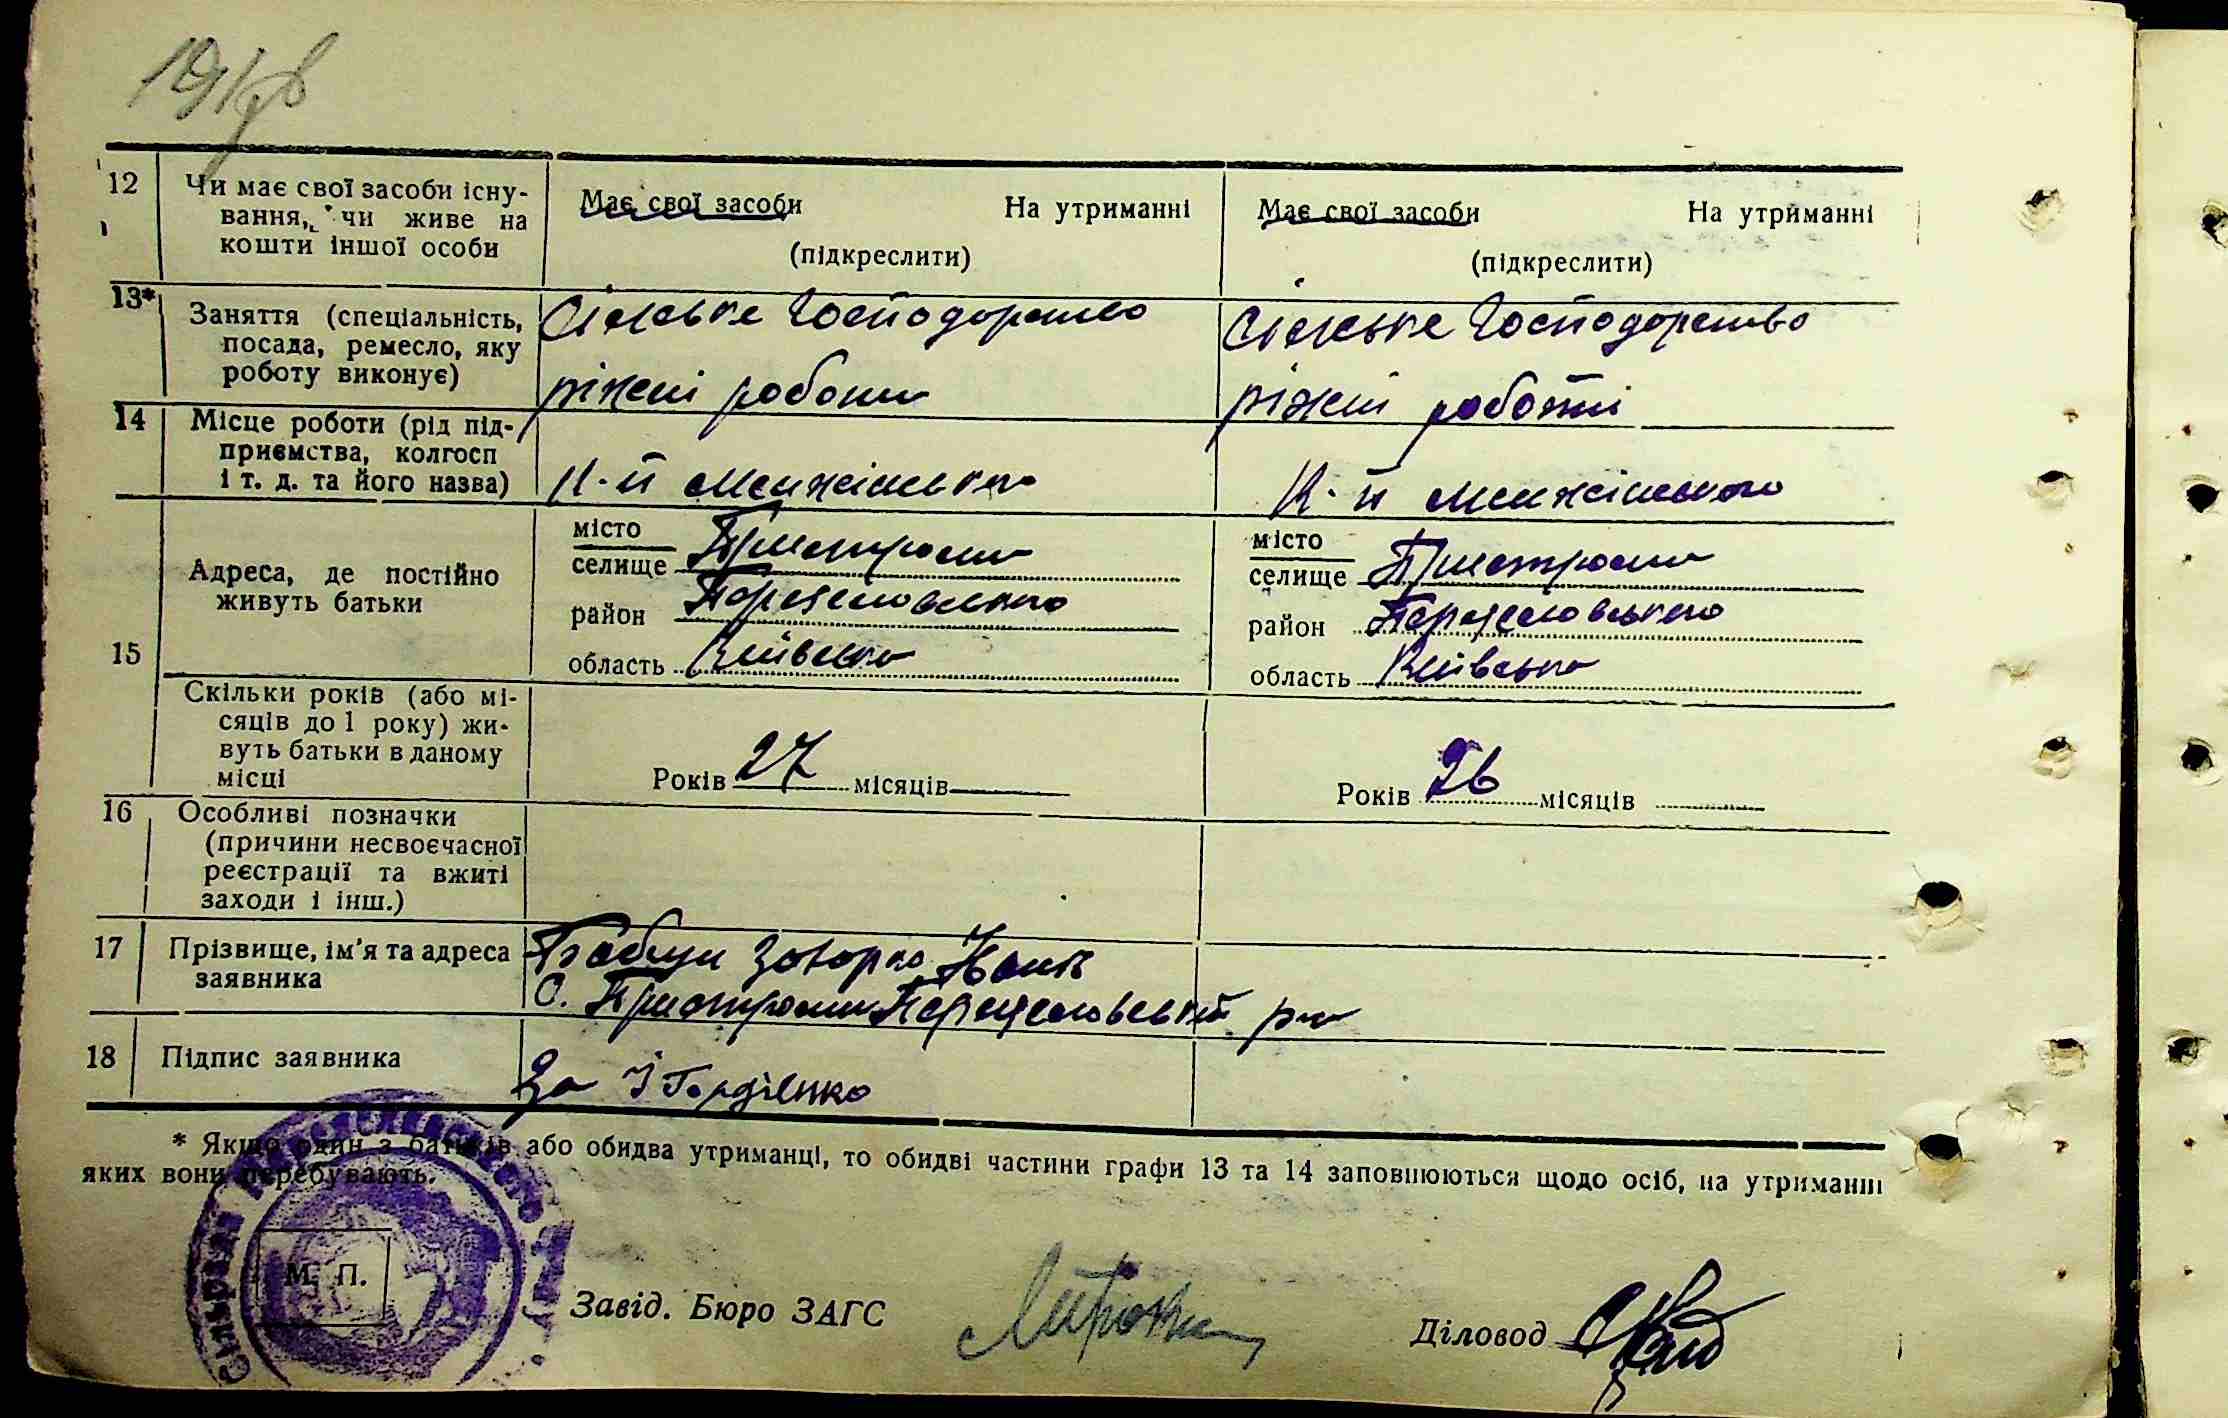 12 Чи має свої засоби існу-
вання, чи живе на
кошти іншої особи
Має свої засоби На утриманні
(підкреслити)
Має свої засоби На утриманні
(підкреслити)
13* Заняття (спеціальність,
посада, ремесло, яку
роботу виконує)
Сільське Господорство
ріжні роботи
Сільське Господорство
ріжні роботі
14 Місце роботи (рід під-
приємства, колгосп
і т. д. та його назва)
К-п Менжінського
К-п Менжінського
15 Адреса, де постійно
живуть батьки
місто
селище Пристроми
район Переяславського
область Київська
місто
селище Пристроми
район Переяславського
область Київська
Скільки років (або мі-
сяців до 1 року) жи-
вуть батьки в даному
місці
Років 27 місяців
Років 26 місяців
16 Особливі позначки
(причини несвоєчасної
реєстрації та вжиті
заходи і інш.)
17 Прізвище, ім'я та адреса
заявника
Іван
С. Пристроми Переяславський р-н
18 Підпис заявника
За І Гордієнко
* Якщо один з батьків або обидва утриманці, то обидві частини графи 13 та 14 заповнюються щодо осіб, на утриманні
яких вони перебувають.
М. П.
Завід. Бюро ЗАГС
Діловод